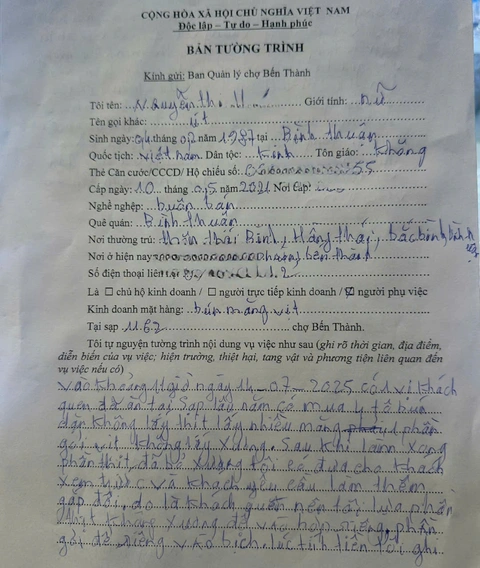 CỘNG HÒA XÃ HỘI CHỦ NGHĨA VIỆT NAM
Độc lập – Tự do – Hạnh phúc
BẢN TƯỜNG TRÌNH
Kính gửi: Ban Quản lý chợ Bến Thành
Tôi tên: Nguyễn thị Giới tính: nữ
Tên gọi khác: út
Sinh ngày: 04 tháng 02 năm 1987 tại Bình thuận
Quốc tịch: việt nam Dân tộc: kinh Tôn giáo: không
Thẻ Căn cước/CCCD/ Hộ chiếu số: 55
Cấp ngày: 10 tháng 05 năm 2021 Nơi cấp:
Nghề nghiệp: buôn bán
Quê quán: Bình thuận
Nơi thường trú: thôn thái Bình, Hồng thái, bắc bình, bình thuận
Nơi ở hiện nay bến thành
Số điện thoại liên lạc
Là ☐ chủ hộ kinh doanh / ☐ người trực tiếp kinh doanh / ☑ người phụ việc
Kinh doanh mặt hàng: bún măng vịt
Tại sạp 1167 chợ Bến Thành.
Tôi tự nguyện tường trình nội dung vụ việc như sau (ghi rõ thời gian, địa điểm,
diễn biến của vụ việc; hiện trường, thiệt hại, tang vật và phương tiện liên quan đến
vụ việc nếu có)
vào khoảng 11 giờ ngày 14-07-2025 có 1 vị khách
quen đã ăn tại sạp lâu năm có mua 1 tô bún
đặp không lấy thịt lấy nhiều măng 1 phần
gỏi vịt không lấy xương. Sau khi làm xong
phần thịt đã bỏ xương tôi có đưa cho khách
xem trước và khách yêu cầu làm thêm
gấp đôi, do là khách quen nên tôi lựa phần
thịt không xương để vào hộp riêng, phần
gỏi để riêng vào bịch, lúc tính tiền tôi ghi